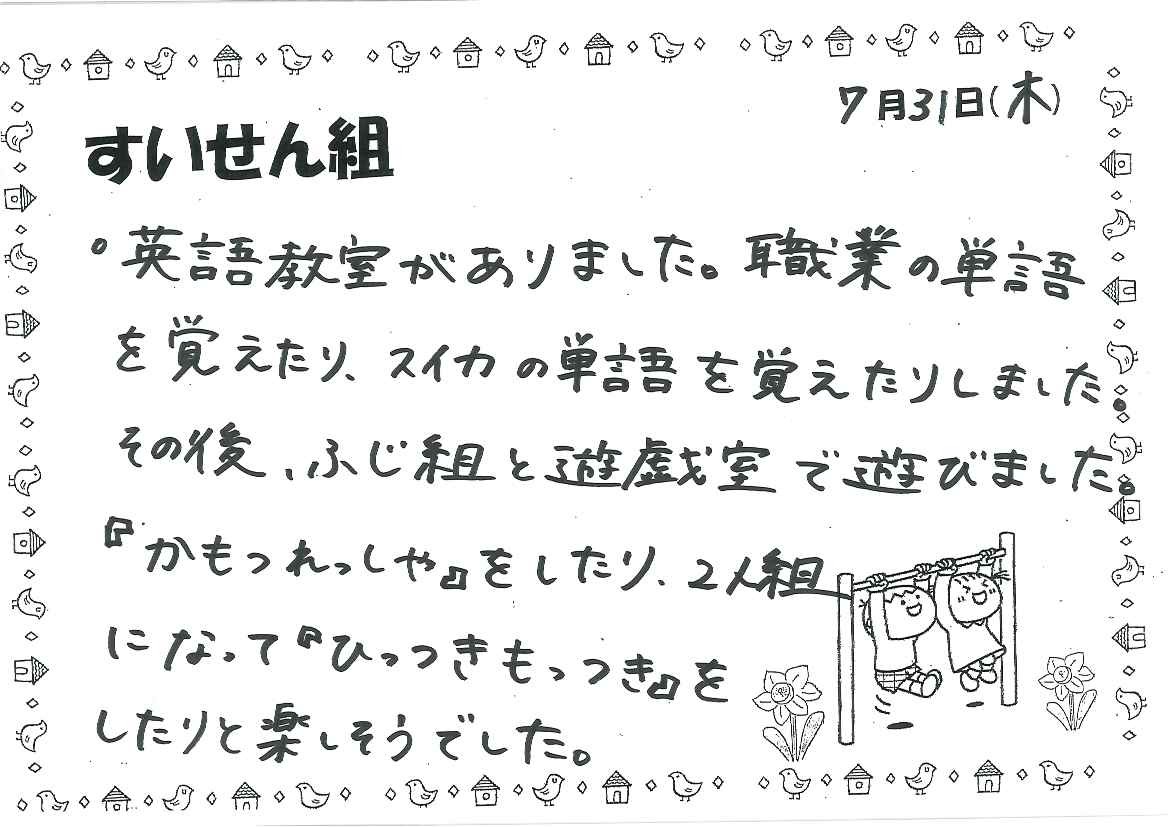 7月31日(木)
すいせん組
。英語教室がありました。職業の単語
を覚えたり、スイカの単語を覚えたりしました。
その後、ふじ組と遊戯室で遊びました。
『かもつれっしゃ』をしたり、2人組
になって『ひっつきもっつき』を
したりと楽しそうでした。